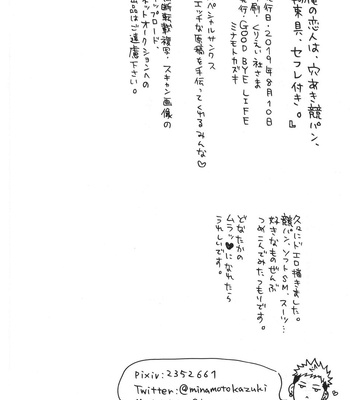 俺の恋人は、穴あき競パン、
拘束具、セフレ付き。』
発行日・2019年8月10日
印刷・くりえい社さま
発行・GOOD BYE LIFE
ミナモトカズキ
スペシャルサンクス
エッチな原稿を手伝ってくれるみんな♡
無断転載複写・スキャン画像の
アップロード、
ネットオークションへの
出品はご遠慮下さい。
久々にドエロ描きました。
競パン、ソフトSM、スーツ…
好きなものぜんぶ
つめこんでみたつもりです。
どなたかの
ムラッ♥になれたら
うれしいです。
Pixiv:2352661
Twitter:@minamotokazuki